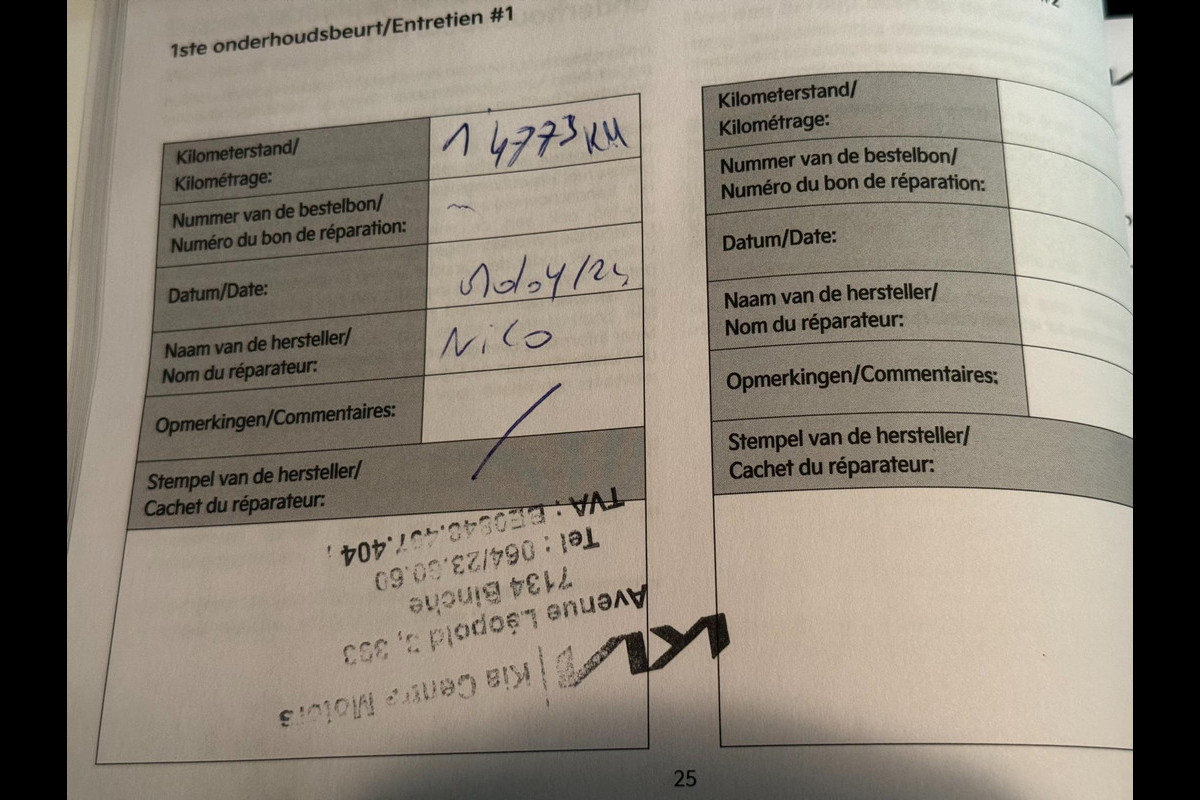 1ste onderhoudsbeurt/Entretien #1
Kilometerstand/
Kilométrage:
14773 KM
Nummer van de bestelbon/
Numéro du bon de réparation:
Datum/Date:
Naam van de hersteller/
Nom du réparateur:
Nico
Opmerkingen/Commentaires:
Stempel van de hersteller/
Cachet du réparateur:
KIA | Kia Centre Motors
Avenue Léopold 3,
7134 Binche
Tel : 064/23.60.60
TVA :
#2
Kilometerstand/
Kilométrage:
Nummer van de bestelbon/
Numéro du bon de réparation:
Datum/Date:
Naam van de hersteller/
Nom du réparateur:
Opmerkingen/Commentaires:
Stempel van de hersteller/
Cachet du réparateur:
25